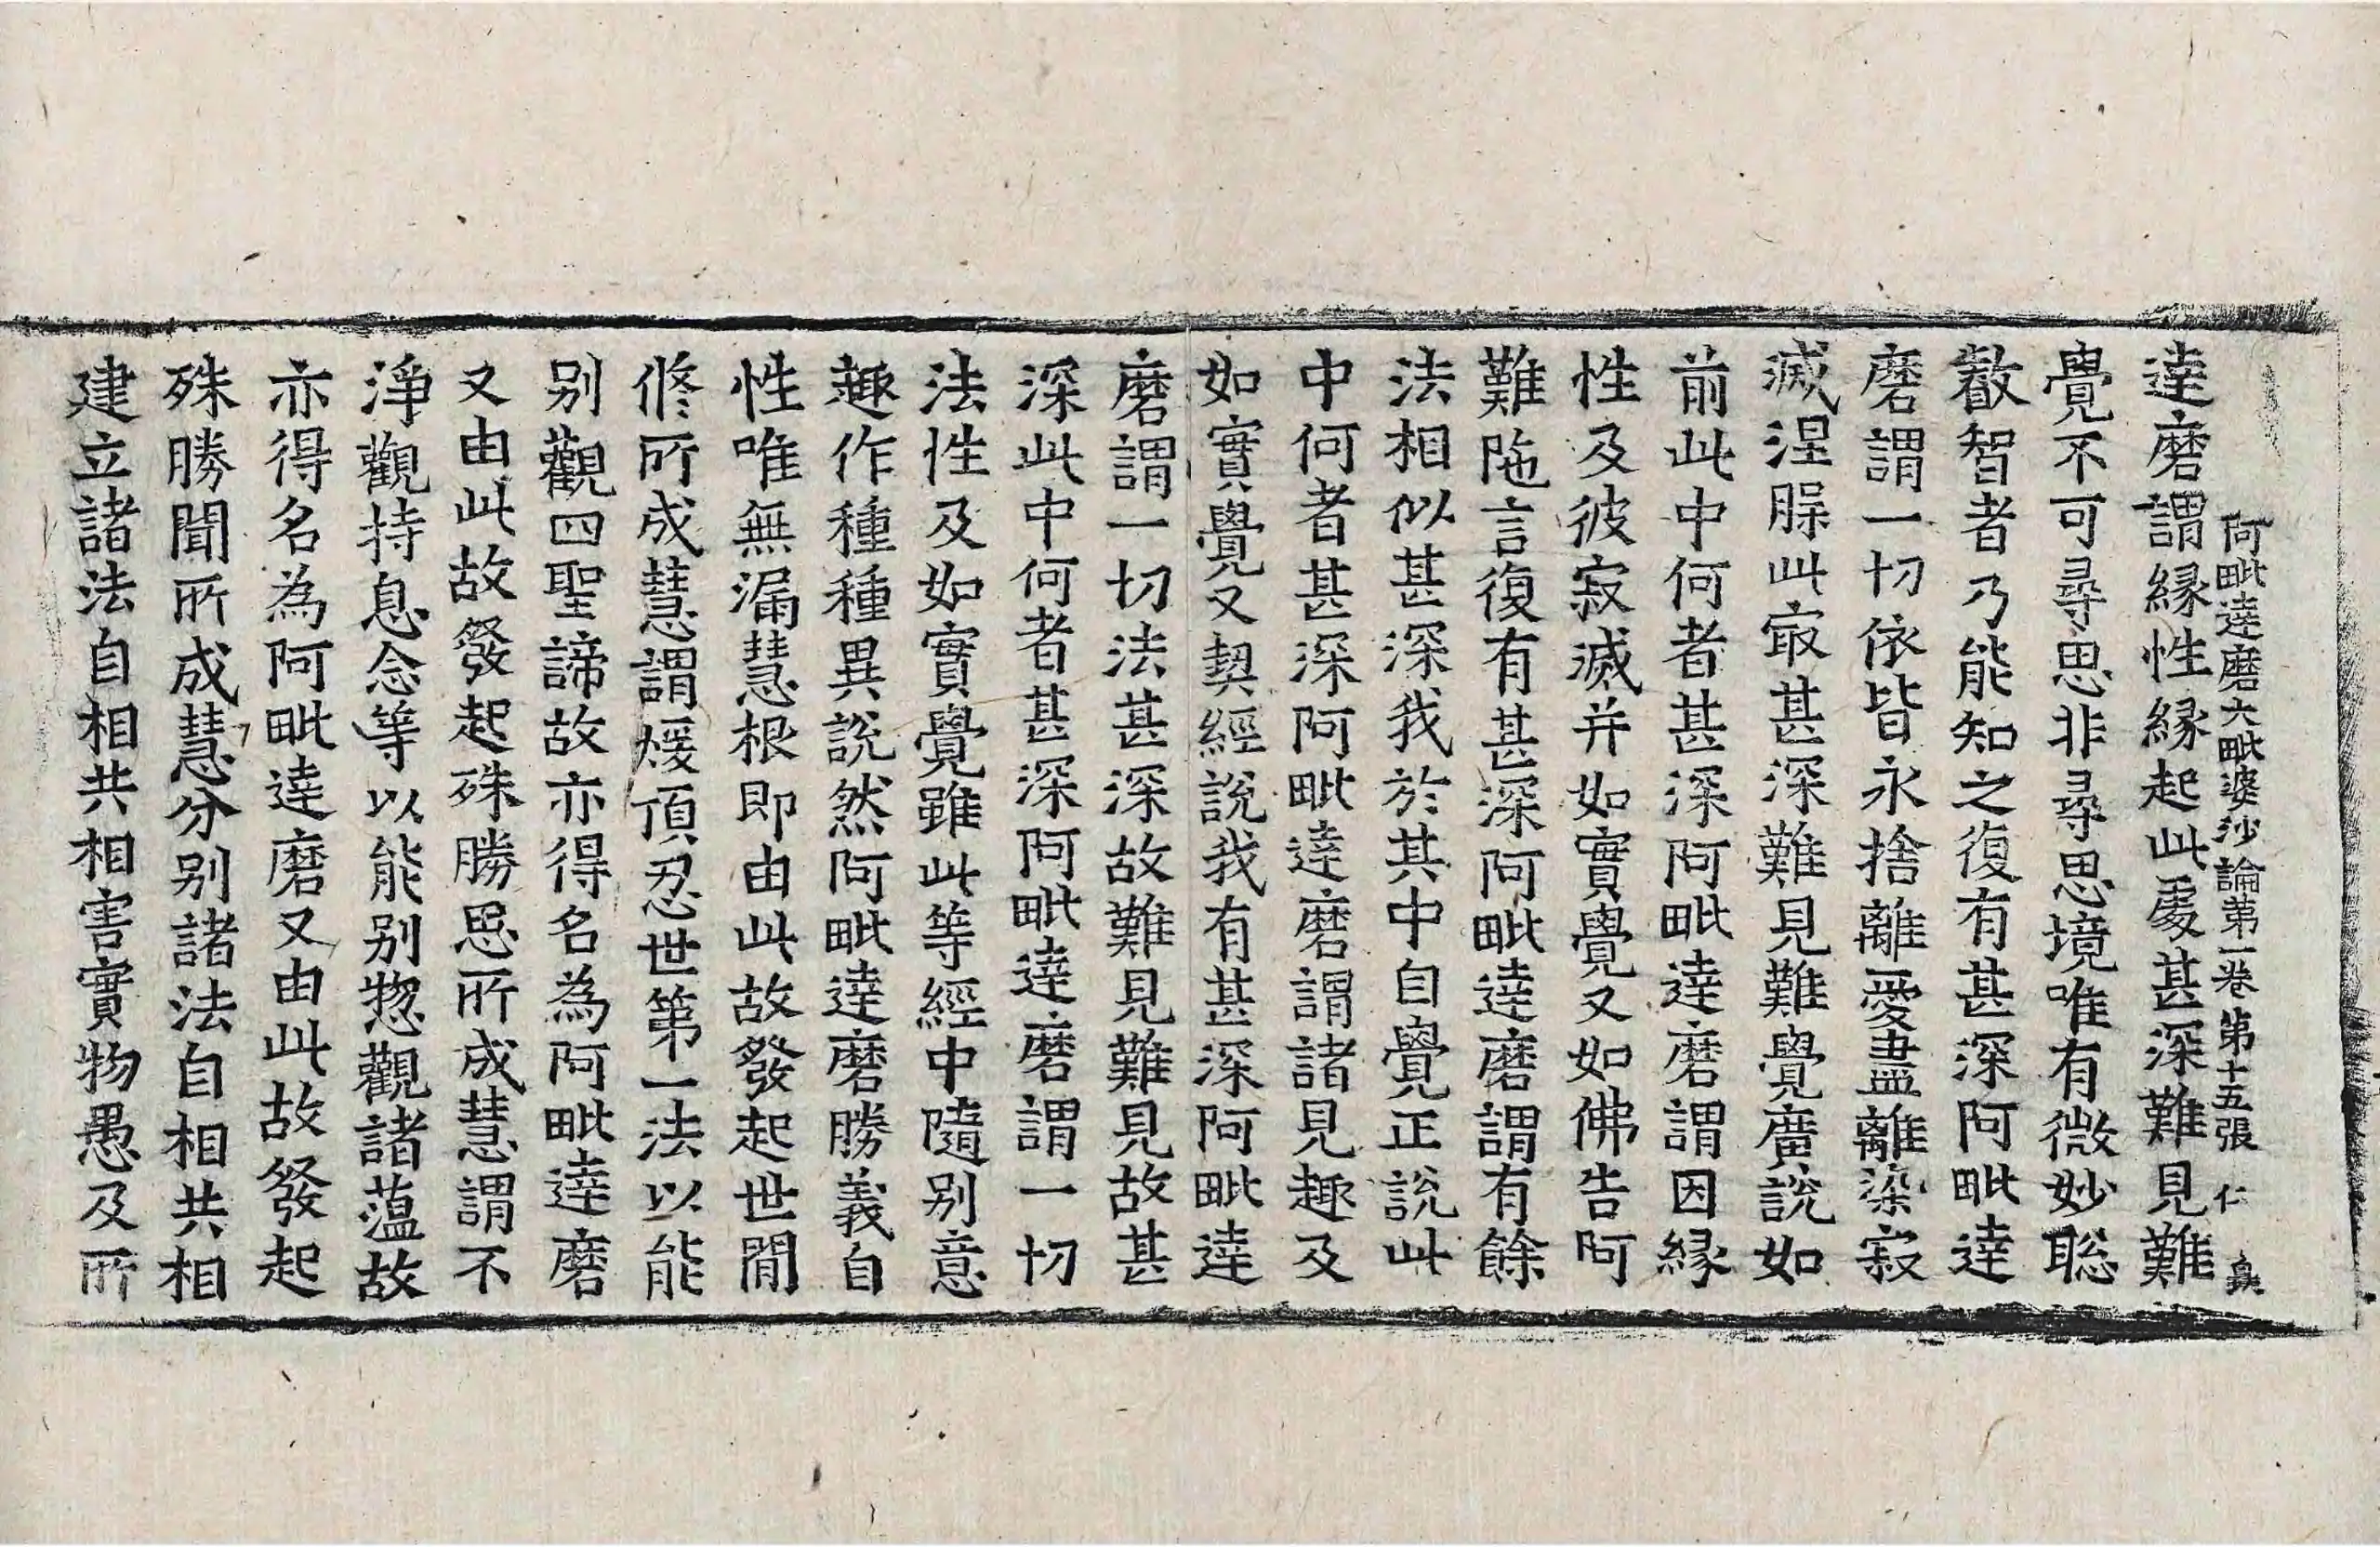 阿毗達磨大毗婆沙論第一卷 第十五張 仁
達磨謂緣性緣起此處甚深難見難
覺不可尋思非尋思境唯有微妙聡
叡智者乃能知之復有甚深阿毗達
磨謂一切依皆永捨離愛盡離染寂
滅涅脲此㝡甚深難見難覺廣說如
前此中何者甚深阿毗達磨謂因緣
性及彼寂滅并如實覺又如佛告阿
難陁言復有甚深阿毗達磨謂有餘
法相似甚深我於其中自覺正說此
中何者甚深阿毗達磨謂諸見趣及
如實覺又契經說我有甚深阿毗達
磨謂一切法甚深故難見難見故甚
深此中何者甚深阿毗達磨謂一切
法性及如實覺雖此等經中隨別意
趣作種種異說然阿毗達磨勝義自
性唯無漏慧根即由此故發起世閒
修所成慧謂煖頂忍世第一法以能
別觀四聖諦故亦得名為阿毗達磨
又由此故發起殊勝思所成慧謂不
淨觀持息念等以能別惣觀諸蕰故
亦得名為阿毗達磨又由此故發起
殊勝聞所成慧分別諸法自相共相
建立諸法自相共相害實物愚及所